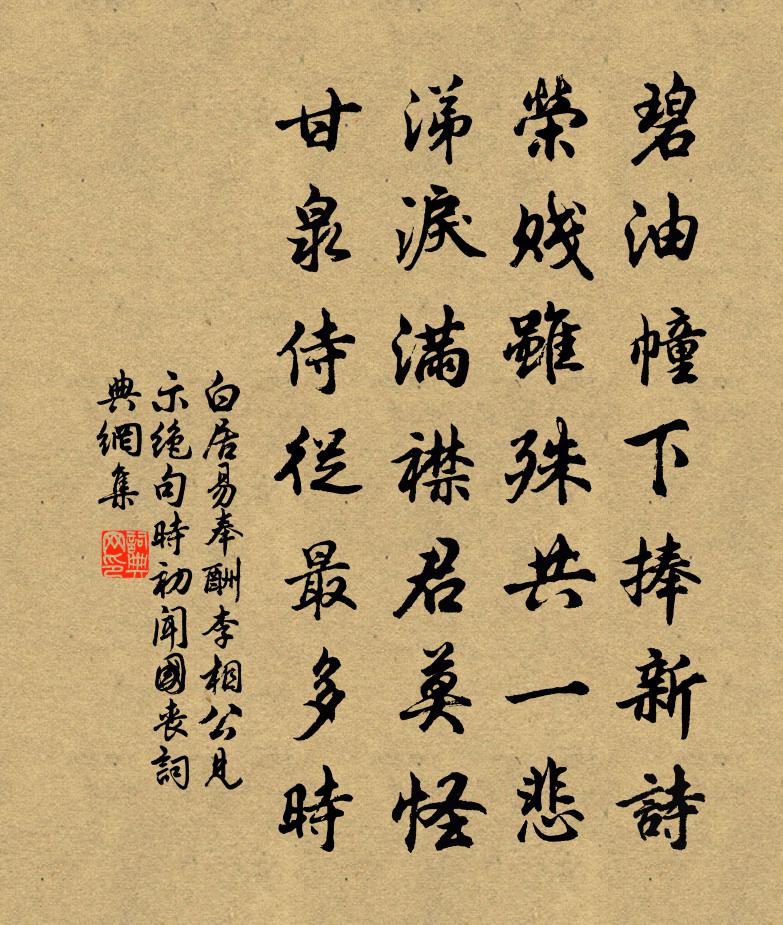 碧油幢下捧新詩
榮賤雖殊共一悲
涕淚滿襟君莫怪
甘泉侍從最多時
白居易奉酬李相公見
示絶句時初聞國喪詞
典網集
詞典网印